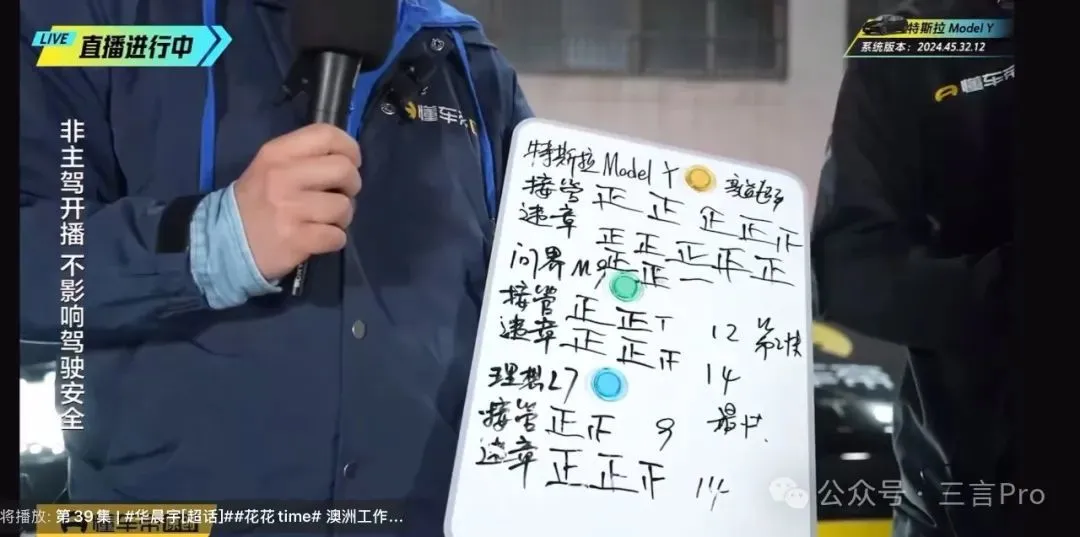 LIVE 直播进行中
特斯拉 Model Y
系统版本：2024.45.32.12
懂车帝
懂车
非主驾开播 不影响驾驶安全
特斯拉 Model Y
接管 正 正 正 正 正
违章 正 正 正 正 正
正 正
问界 M9
接管 正 正 T 12 第2快
违章 正 正 正 14
理想L7
接管 正 正 9
违章 正 正 正 14
将播放: 第39集 | #华晨宇[超话]##花花time# 澳洲工作...
公众号 · 三言Pro